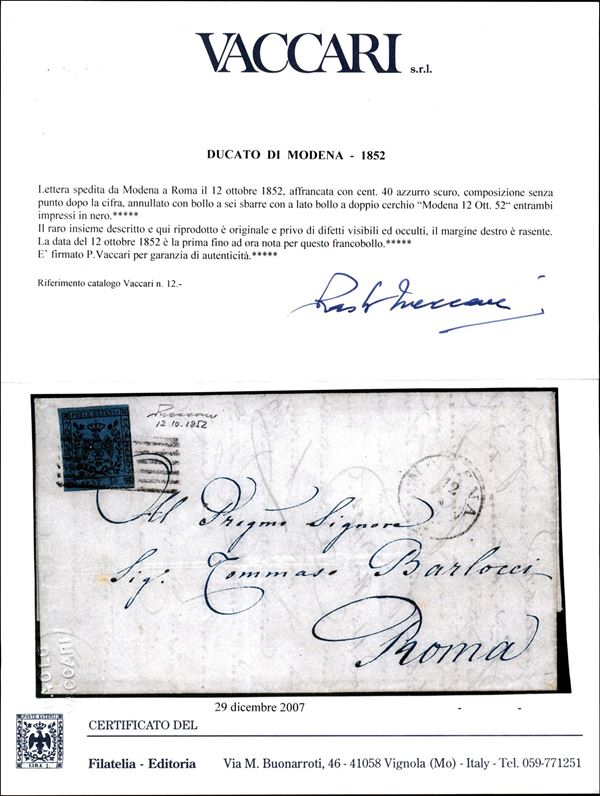 VACCARI s.r.l.
DUCATO DI MODENA - 1852
Lettera spedita da Modena a Roma il 12 ottobre 1852, affrancata con cent. 40 azzurro scuro, composizione senza
punto dopo la cifra, annullato con bollo a sei sbarre con a lato bollo a doppio cerchio “Modena 12 Ott. 52“ entrambi
impressi in nero.*****
Il raro insieme descritto e qui riprodotto è originale e privo di difetti visibili ed occulti, il margine destro è rasente.
La data del 12 ottobre 1852 è la prima fino ad ora nota per questo francobollo.*****
E' firmato P.Vaccari per garanzia di autenticità.*****
Riferimento catalogo Vaccari n. 12.-
POSTE ESTENSI
12.10.1852
MODENA
12
Al Pregmo Signore
Sig. Tommaso Barlocci
Roma
PAOLO
VACCARI
29 dicembre 2007 - -
POSTE ESTENSI
LIRA 1.
CERTIFICATO DEL
Filatelia - Editoria Via M. Buonarroti, 46 - 41058 Vignola (Mo) - Italy - Tel. 059-771251